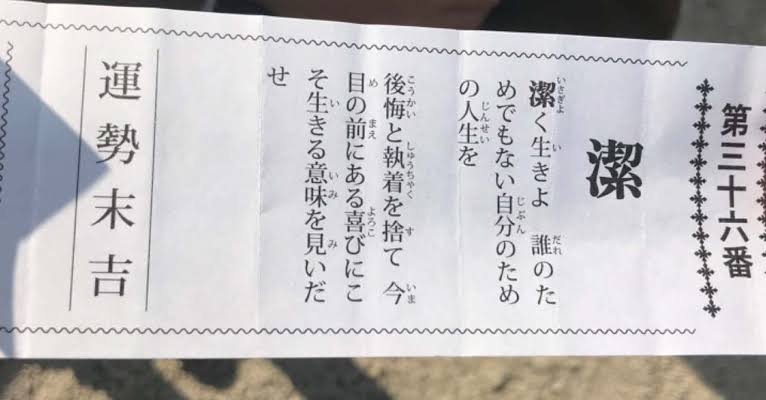 第三十六番
潔
潔く生きよ　誰のた
めでもない自分のため
の人生を
後悔と執着を捨て　今
目の前にある喜びにこ
そ生きる意味を見いだ
せ
運勢末吉